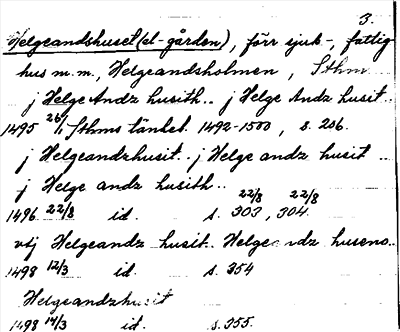 3.
Helgeandshuset (el -gården), förr sjuk-, fattig
hus m.m., Helgeandsholmen, Sthm
j Helge Andz husith.. j Helge Andz husit..
1495 26/1 Sthms tänkeb. 1492-1500, s. 206.
j Helgeandzhusit.. j Helge andz husit ..
j Helge andz husith..
1496 22/8 id. s. 303 22/8, 304 22/8
vtj Helgeandz husit.. Helgeandz huseno..
1498 12/3 id. s. 354
Helgeandzhusit
1498 14/3 id. s. 355.